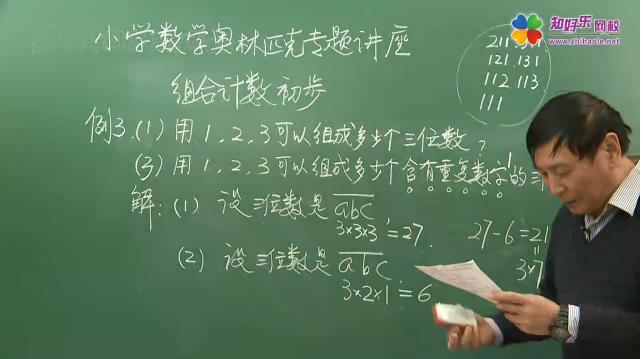 知好乐网校
www.zhihaole.net
小学数学奥林匹克专题讲座
组合计数初步
211.311
121.131
112.113
111
例3.(1) 用1,2,3可以组成多少个三位数?
(3) 用1,2,3可以组成多少个含有重复数字的三
解:(1) 设三位数是abc,
3×3×3=27.
27-6=21
(2) 设三位数是abc.
3×2×1=6
3×7